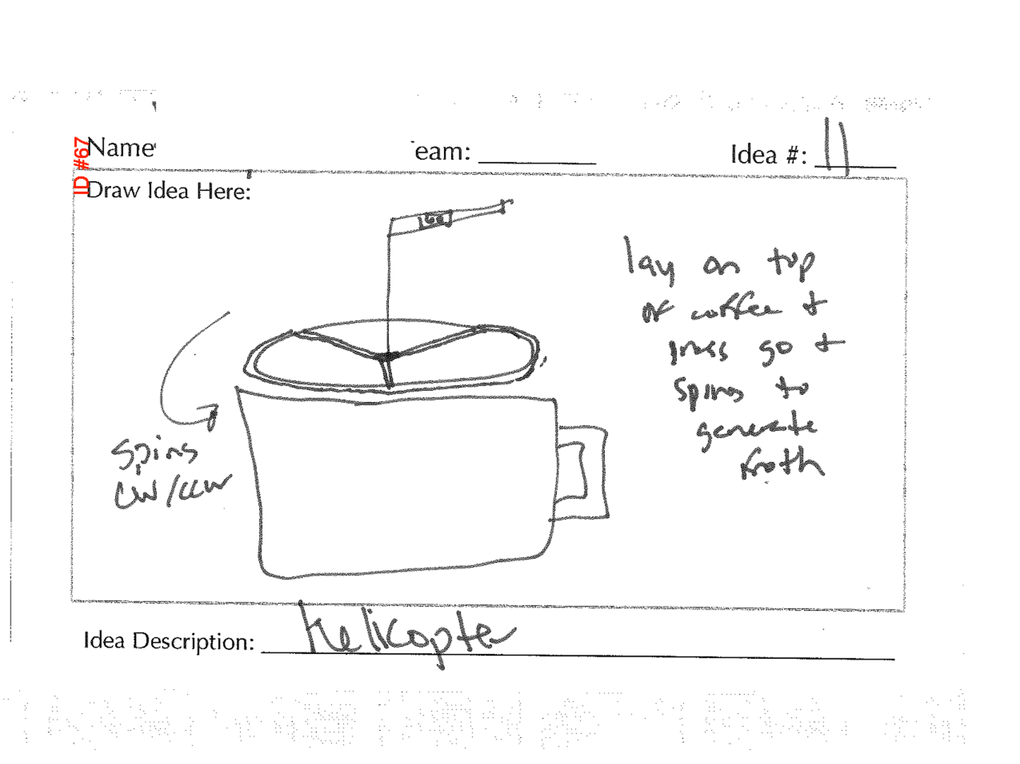 ID #67
Name
eam:
Idea #: 11
Draw Idea Here:
GO
lay on top
of coffee +
press go +
spins to
generate
froth
spins
CW/CCW
Idea Description: Helicopter